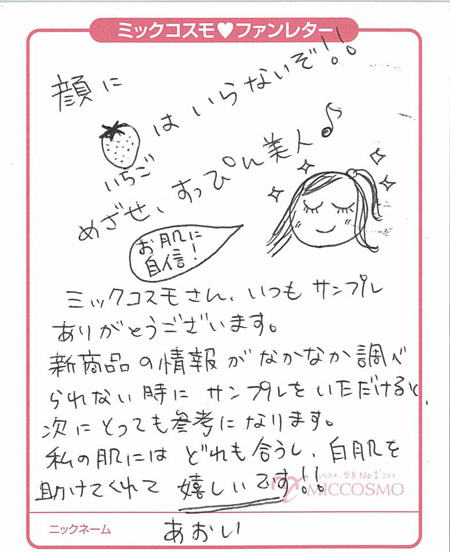 ミックコスモ♥ファンレター
顔に
はいらないぞ!!
いちご
めざせ、すっぴん美人♪
お肌に
自信!
ミックコスモさん、いつもサンプル
ありがとうございます。
新商品の情報がなかなか調べ
られない時にサンプルをいただけると、
次にとっても参考になります。
私の肌にはどれも合うし、白肌を
助けてくれて嬉しいです!!
No.1
MICCOSMO
ニックネーム
あおい